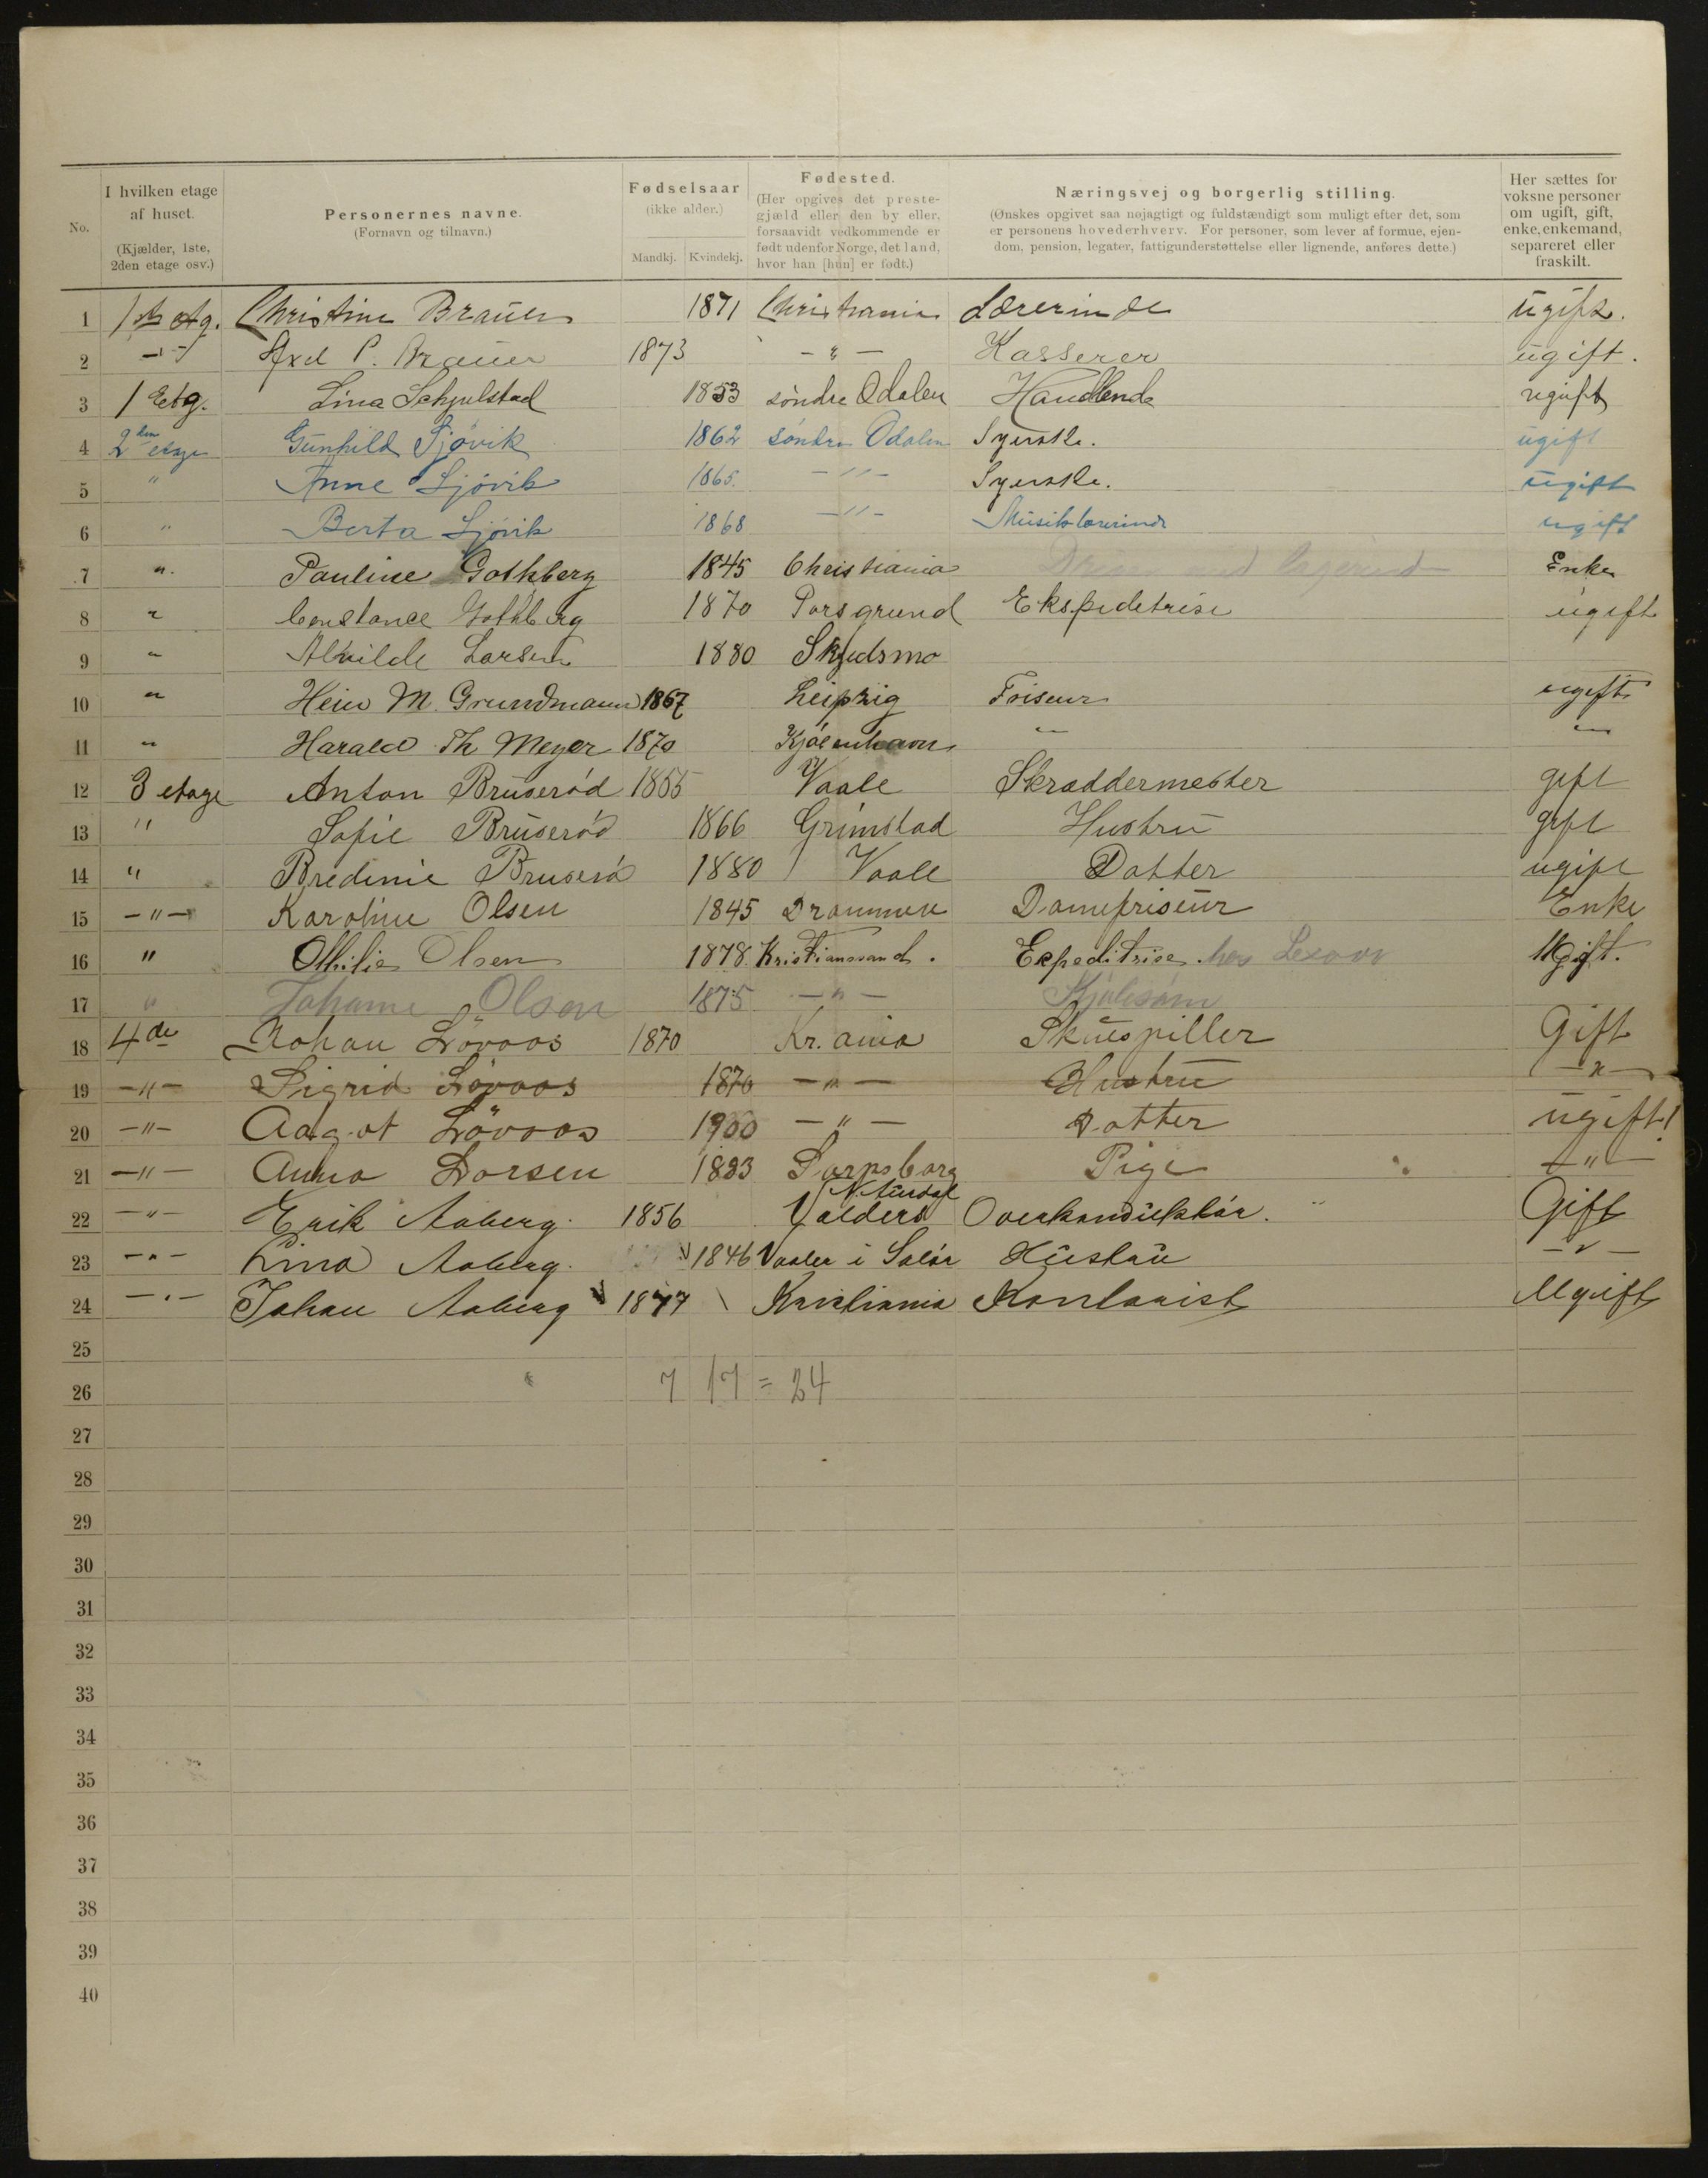 No.
I hvilken etage af huset.
(Kjælder, 1ste, 2den etage osv.)
Personernes navne.
(Fornavn og tilnavn.)
Fødselsaar
(ikke alder.)
Mandkj. Kvindekj.
Fødested.
(Her opgives det prestegjæld eller den by eller, forsaavidt vedkommende er født udenfor Norge, det land, hvor han [hun] er født.)
Næringsvej og borgerlig stilling.
(Ønskes opgivet saa nøjagtigt og fuldstændigt som muligt efter det, som er personens hovederhverv. For personer, som lever af formue, ejendom, pension, legater, fattigunderstøttelse eller lignende, anføres dette.)
Her sættes for voksne personer om ugift, gift, enke, enkemand, separeret eller fraskilt.
1 1ste etg. Christine Braüer 1871 Christiania Lærerinde ugift.
2 -"- Axel P. Braüer 1873 -"- Kasserer ugift.
3 1 Etg. Lina Schjulstad 1853 søndre Odalen Handlende ugift
4 2den etage Gunhild Sjøvik 1862 søndre Odalen Syerske. ugift
5 " Anne Sjøvik 1865. -"- Syerske. ugift
6 " Berta Sjøvik 1868 -"- Musiklærerinde ugift
7 ". Pauline Gothberg 1845 Christiania Enke
8 " Constance Gothberg 1870 Porsgrund Ekspeditrise ugift
9 " Alvilde Larsen 1880 Skjedsmo
10 " Hein M. Grundmann 1867 Leipzig Friseur ugift
11 " Harald Th Meyer 1870 Kjøbenhavn " "
12 3 etage Anton Bruserød 1855 Vaale Skræddermester gift
13 " Sofie Bruserød 1866 Grimstad Hustru gift
14 " Bredinie Bruserød 1880 Vaale Datter ugift
15 -"- Karoline Olsen 1845 Drammen Damefriseur Enke
16 " Othilie Olsen 1878. Kristianssand. Expeditrise. hos Ugift.
17 " Johanne Olsen 1875 -"- Kjolesøm
18 4de Johan Løvaas 1870 Kr.ania Skuespiller Gift
19 -"- Sigrid Løvaas 1870 -"- Hustru -"-
20 -"- Aagot Løvaas 1900 -"- Datter ugift!
21 -"- Anna Larsen 1883 Sarpsborg Pige -"-
22 -"- Erik Aaberg. 1856 N. Aurdal Valders Overkonduktør. Gift
23 -"- Lina Aaberg. 1846 Vaaler i Solør Hustru -"-
24 -"- Johan Aaberg 1877 Kristiania Kontorist Ugift
25
26 7 17 = 24
27
28
29
30
31
32
33
34
35
36
37
38
39
40